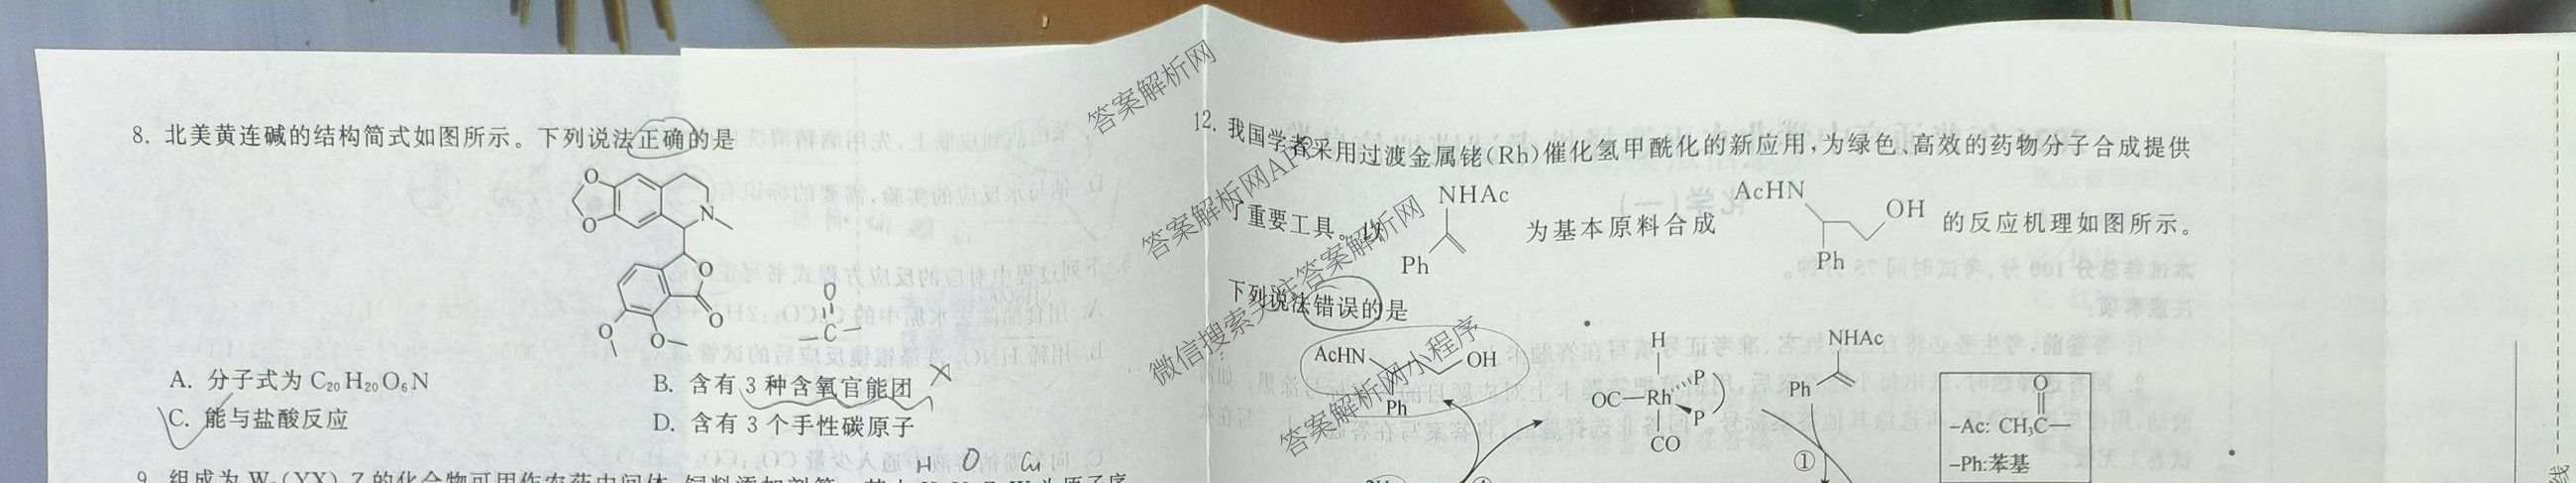 8. 北美黄连碱的结构简式如图所示。下列说法正确的是
O
O
N
O
O
O
O
O
C
A. 分子式为 C₂₀H₂₀O₆N
B. 含有 3 种含氧官能团
C. 能与盐酸反应
D. 含有 3 个手性碳原子
H O Cl
12. 我国学者采用过渡金属铑(Rh)催化氢甲酰化的新应用,为绿色、高效的药物分子合成提供
了重要工具。以
NHAc
Ph
为基本原料合成
AcHN
OH
Ph
的反应机理如图所示。
下列说法错误的是
AcHN
OH
Ph
H
OC—Rh
P
P
CO
NHAc
Ph
①
O
-Ac: CH₃C—
-Ph:苯基
答案解析网
答案解析网APP
微信搜索关注答案解析网
答案解析网小程序
线